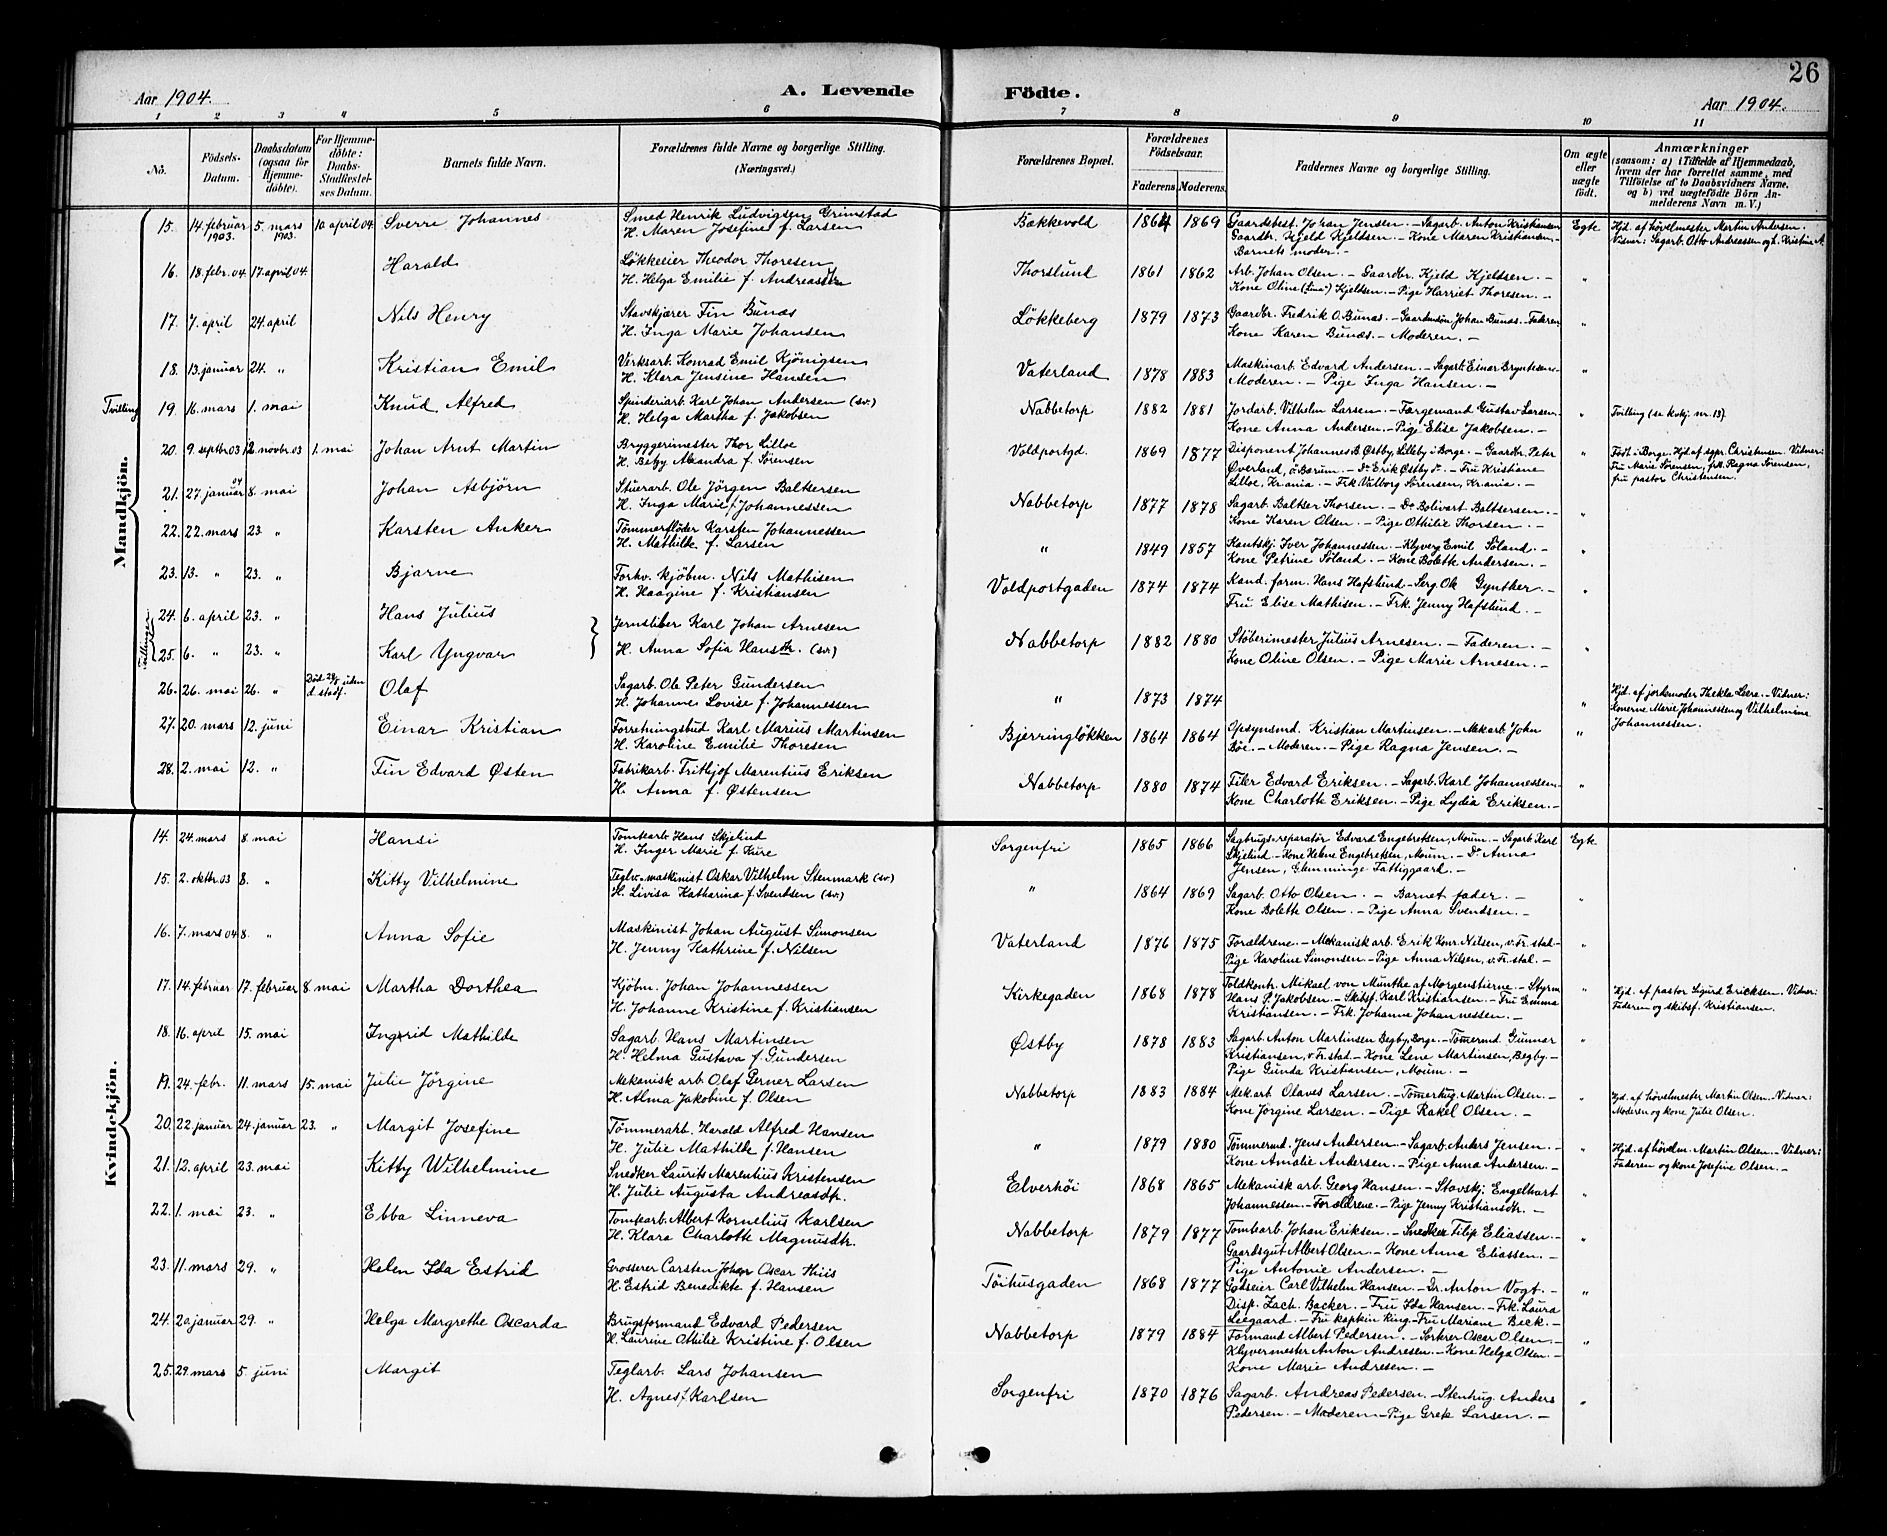 26
Aar 1904.
A. Levende Födte.
Aar 1904.
1 2 3 4 5 6 7 8 9 10 11
No.
Födsels-Datum.
Daabsdatum (ogsaa for Hjemme-döbte).
For Hjemme-döbte: Daabs-Stadfæstel-ses Datum.
Barnets fulde Navn.
Forældrenes fulde Navne og borgerlige Stilling. (Næringsvei.)
Forældrenes Bopæl.
Forældrenes Födselsaar.
Faderens Moderens.
Faddernes Navne og borgerlige Stilling.
Om ægte eller uægte födt.
Anmærkninger
(saasom: a) i Tilfælde af Hjemmedaab, hvem der har forrettet samme, med Tilföielse af to Daabsvidners Navne, og b) ved uægtefödte Börn Anmelderens Navn m. V.)
Mandkjön.
15. 14. februar 1903. 5. mars 1903. 10 april 04. Sverre Johannes
Smed Henrik Ludvigsen Grimstad
H. Maren Josefine f. Larsen
Bakkevold 1864 1869
Gaardsbest. Johan Jensen. – Sagarb. Anton Kristiansen
Gaardbr. Kjeld Kjeldsen. – Kone Maren Kristiansen. –
Barnets moder. –
Egte
Hjd. af hövelmester Martin Andersen.
Vidner: Sagarb. Otto Andreassen og h. Kristine A.
16. 18. febr. 04. 17. april 04. Harald
Løkkeeier Theodor Thoresen
H. Helga Emilie f. Andreasdtr
Thorslund 1861 1862
Arb. Johan Olsen. – Gaardbr. Kjeld Kjeldsen. –
Kone Oline (Lina) Kjeldsen. – Pige Harriet Thoresen. –
"
17. 7. april 24. april Nils Henry
Stavskjærer Fin Bunæs
H. Inga Marie Johansen
Lökkeberg 1879 1873
Gaardbr. Fredrik O. Bunæs. – Gaardmsön Johan Bunæs. – Faderen
Kone Karen Bunæs. – Moderen. –
"
18. 13. januar 24. " Kristian Emil
Verksarb. Konrad Emil Kjönigsen
H. Klara Jensine Hansen
Vaterland 1878 1883
Maskinarb. Edvard Andersen. – Sagarb. Einar Bryntesen. –
Moderen. – Pige Inga Hansen. –
"
Tvilling 19. 16. mars 1. mai Knud Alfred
Spinderiarb. Karl Johan Andersen (sv.)
H. Helga Martha f. Jakobsen
Nabbetorp 1882 1881
Jordarb. Vilhelm Larsen. – Færgemand Gustav Larsen.
Kone Anna Andersen. – Pige Elise Jakobsen. –
"
Tvilling (se kvkj. nr. 13).
20. 9. septbr. 03 12. novbr. 03 1. mai Johan Arnt Martin
Bryggerimester Thor Lilloe
H. Betzy Alexandra f. Sörensen
Voldportgd. 1869 1877
Disponent Johannes B. Østby, Lilleby i Borge. – Gaardbr. Peter
Øverland, ö. Bærum. – Dr Erik Østby dr. – Fru Kristiane
Lilloe, Kr.ania. – Frk. Valborg Sørensen, Kr.ania. –
"
Født i Borge. Hjd. af sgpr. Christensen. Vidner:
Fru Marie Sørensen, frk. Ragna Sørensen,
fru pastor Christensen.
21. 27 januar 04 8. mai Johan Asbjörn
Stuerarb. Ole Jörgen Baltsersen
H. Inga Marie f. Johannessen
Nabbetorp 1877 1878
Sagarb. Baltser Thorsen. – Do Bolivart Baltsersen. –
Kone Karen Olsen. – Pige Othilie Thorsen. –
"
22. 22. mars 23. " Karsten Anker
Tömmerflöder Karsten Johannessen
H. Mathilde f. Larsen
" 1849 1857
Kantskj. Iver Johannessen. – Klyver Emil Söland. –
Kone Petrine Söland. – Kone Bolette Andersen. –
"
23. 13. " 23. " Bjarne
Forhv. kjöbm. Nils Mathisen
H. Haagine f. Kristiansen
Voldportgaden 1874 1874
Kand. farm. Hans Hafslund – Serg. Ole Gynther. –
Fru Elise Mathisen. – Frk. Jenny Hafslund. –
"
Tvillinger
24. 6. april 23. " Hans Julius
25. 6. " 23. " Karl Yngvar
Jernsliber Karl Johan Arnesen
H. Anna Sofia Hansdtr. (sv.)
Nabbetorp 1882 1880
Stöberimester Julius Arnesen. – Faderen. –
Kone Oline Olsen. – Pige Marie Arnesen. –
"
26. 26. mai 26. " Död 28/5 uden d. stadf. Olaf
Sagarb. Ole Peter Gundersen
H. Johanne Lovise f. Johannessen
" 1873 1874
"
Hjd. af jordemoder Thekla Leere. – Vidner:
Konerne Marie Johannessen og Vilhelmine
Johannessen.
27. 20. mars 12. juni Einar Kristian
Forretningsbud Karl Marius Martinsen
H. Karoline Emilie Thoresen
Bjerringløkken 1864 1864
Opsynsmd. Kristian Martinsen. – Mek.arb. John
Böe. – Moderen. – Pige Ragna Jensen. –
"
28. 2. mai 12. " Fin Edvard Østen
Fabrikarb. Frithjof Marentius Eriksen
H. Anna f. Østensen
Nabbetorp 1880 1874
Filer Edvard Eriksen. – Sagarb. Karl Johannessen. –
Kone Charlotte Eriksen. – Pige Lydia Eriksen. –
"
Kvindekjön.
14. 24. mars 8. mai Hansi
Tomtearb. Hans Skjelind
H. Inger Marie f. Kure
Sorgenfri 1865 1866
Sagbrugsreparatör Edvard Engebretsen, Moum. – Sagarb. Karl
Skjelind. – Kone Helene Engebretsen, Moum. – Do Anna
Jensen, Glemminge Fattiggaard. –
Egte
15. 2. oktbr. 03 8. " Kitty Vilhelmine
Teglv.maskinist Oskar Vilhelm Stenmark (sv.)
H. Livisa Katharina f. Svendsen (sv.)
" 1864 1869
Sagarb. Otto Olsen. – Barnets fader. –
Kone Bolette Olsen. – Pige Anna Svendsen. –
"
16. 7. mars 04 8. " Anna Sofie
Maskinist Johan August Simonsen
H. Jenny Kathrine f. Nilsen
Vaterland 1876 1875
Forældrene. – Mekanisk arb. Erik Konr. Nilsen, v. Fr.stad. –
Pige Karoline Simonsen. – Pige Anna Nilsen, v. Fr.stad. –
"
17. 14. februar 17. februar 8. mai Martha Dorthea
Kjöbm. Johan Johannessen
H. Johanne Kristine f. Kristiansen
Kirkegaden 1868 1878
Toldkontr. Mikael von Munthe af Morgenstierne. – Styrm.
Hans P. Jakobsen. – Skibsf. Karl Kristiansen. – Fru Emma
Kristiansen. – Frk. Johanne Johannessen. –
"
Hjd. af pastor Sigurd Ericksen. Vidner:
Faderen og skibsf. Kristiansen.
18. 16. april 15. mai Ingrid Mathilde
Sagarb. Hans Martinsen
H. Helma Gustava f. Gundersen
Østby 1878 1883
Sagarb. Anton Martinsen Begby, Borge. – Tömermd. Gunnar
Kristiansen, v. Fr.stad. – Kone Lene Martinsen, Begby. –
Pige Gunda Kristiansen, Moum. –
"
19. 24. febr. 11. mars 15. mai Julie Jörgine
Mekanisk arb. Olaf Perner Larsen
H. Alma Jakobine f. Olsen
Nabbetorp 1883 1884
Mek. arb. Olaves Larsen. – Tömerhug. Martin Olsen. –
Kone Jörgine Larsen. – Pige Rakel Olsen. –
"
Hjd. af hövelmester Martin Olsen. Vidner:
Moderen og kone Julie Olsen.
20. 22 januar 24. januar 23. " Margit Josefine
Tömmerarb. Harald Alfred Hansen
H. Julie Mathilde f. Hansen
" 1879 1880
Tömmermd. Jens Andersen. – Sagarb. Anders Jensen. –
Kone Amalie Andersen. – Pige Anna Andersen. –
"
Hjd. af hövelm. Martin Olsen. – Vidner:
Faderen og kone Josefine Olsen. –
21. 12. april 23. mai Kitty Wilhelmine
Snedker Laurits Marentius Kristensen
H. Julie Augusta Andreasdtr.
Elverhöi 1868 1865
Mekanisk arb. Georg Hansen. – Stavskj. Engelhart
Johannessen. – Forældrene. – Pige Jenny Kristiansdtr. –
"
22. 1. mai 23. " Ebba Linneva
Tomtearb. Albert Kornelius Karlsen
H. Klara Charlotte Magnusdtr.
Nabbetorp 1879 1877
Tomtearb. Johan Eriksen. – Snedker Filip Eliassen. –
Gaardsgut Albert Olsen. – Kone Anna Eliassen. –
Pige Antonie Andersen. –
"
23. 11. mars 29. " Helen Ida Estrid
Grosserer Carsten Johan Oscar Thiis
H. Estrid Benedikte f. Hansen
Töihusgaden 1868 1877
Godseier Carl Vilhelm Hansen. – Dr. Anton Vogt. –
Disp. Zach. Backer. – Fru Ida Hansen. – Frk. Laura
Leegaard. – Fru kaptein Ring. – Fru Mariane Bick. –
"
24. 20 januar 29. " Helga Margrethe Oscarda
Brugsformand Edvard Pedersen
H. Laurine Othilie Kristine f. Olsen
Nabbetorp 1879 1884
Formand Albert Pedersen. – Sorterer Oscar Olsen. –
Klyvermester Anton Andresen. – Kone Helga Olsen. –
Kone Marie Andresen. –
"
25. 29. mars 5. juni Margit
Teglarb. Lars Johansen
H. Agnes f. Karlsen
Sorgenfri 1870 1876
Sagarb. Andreas Pedersen. – Stenhug. Anders
Pedersen. – Moderen. – Pige Grete Larsen. –
"